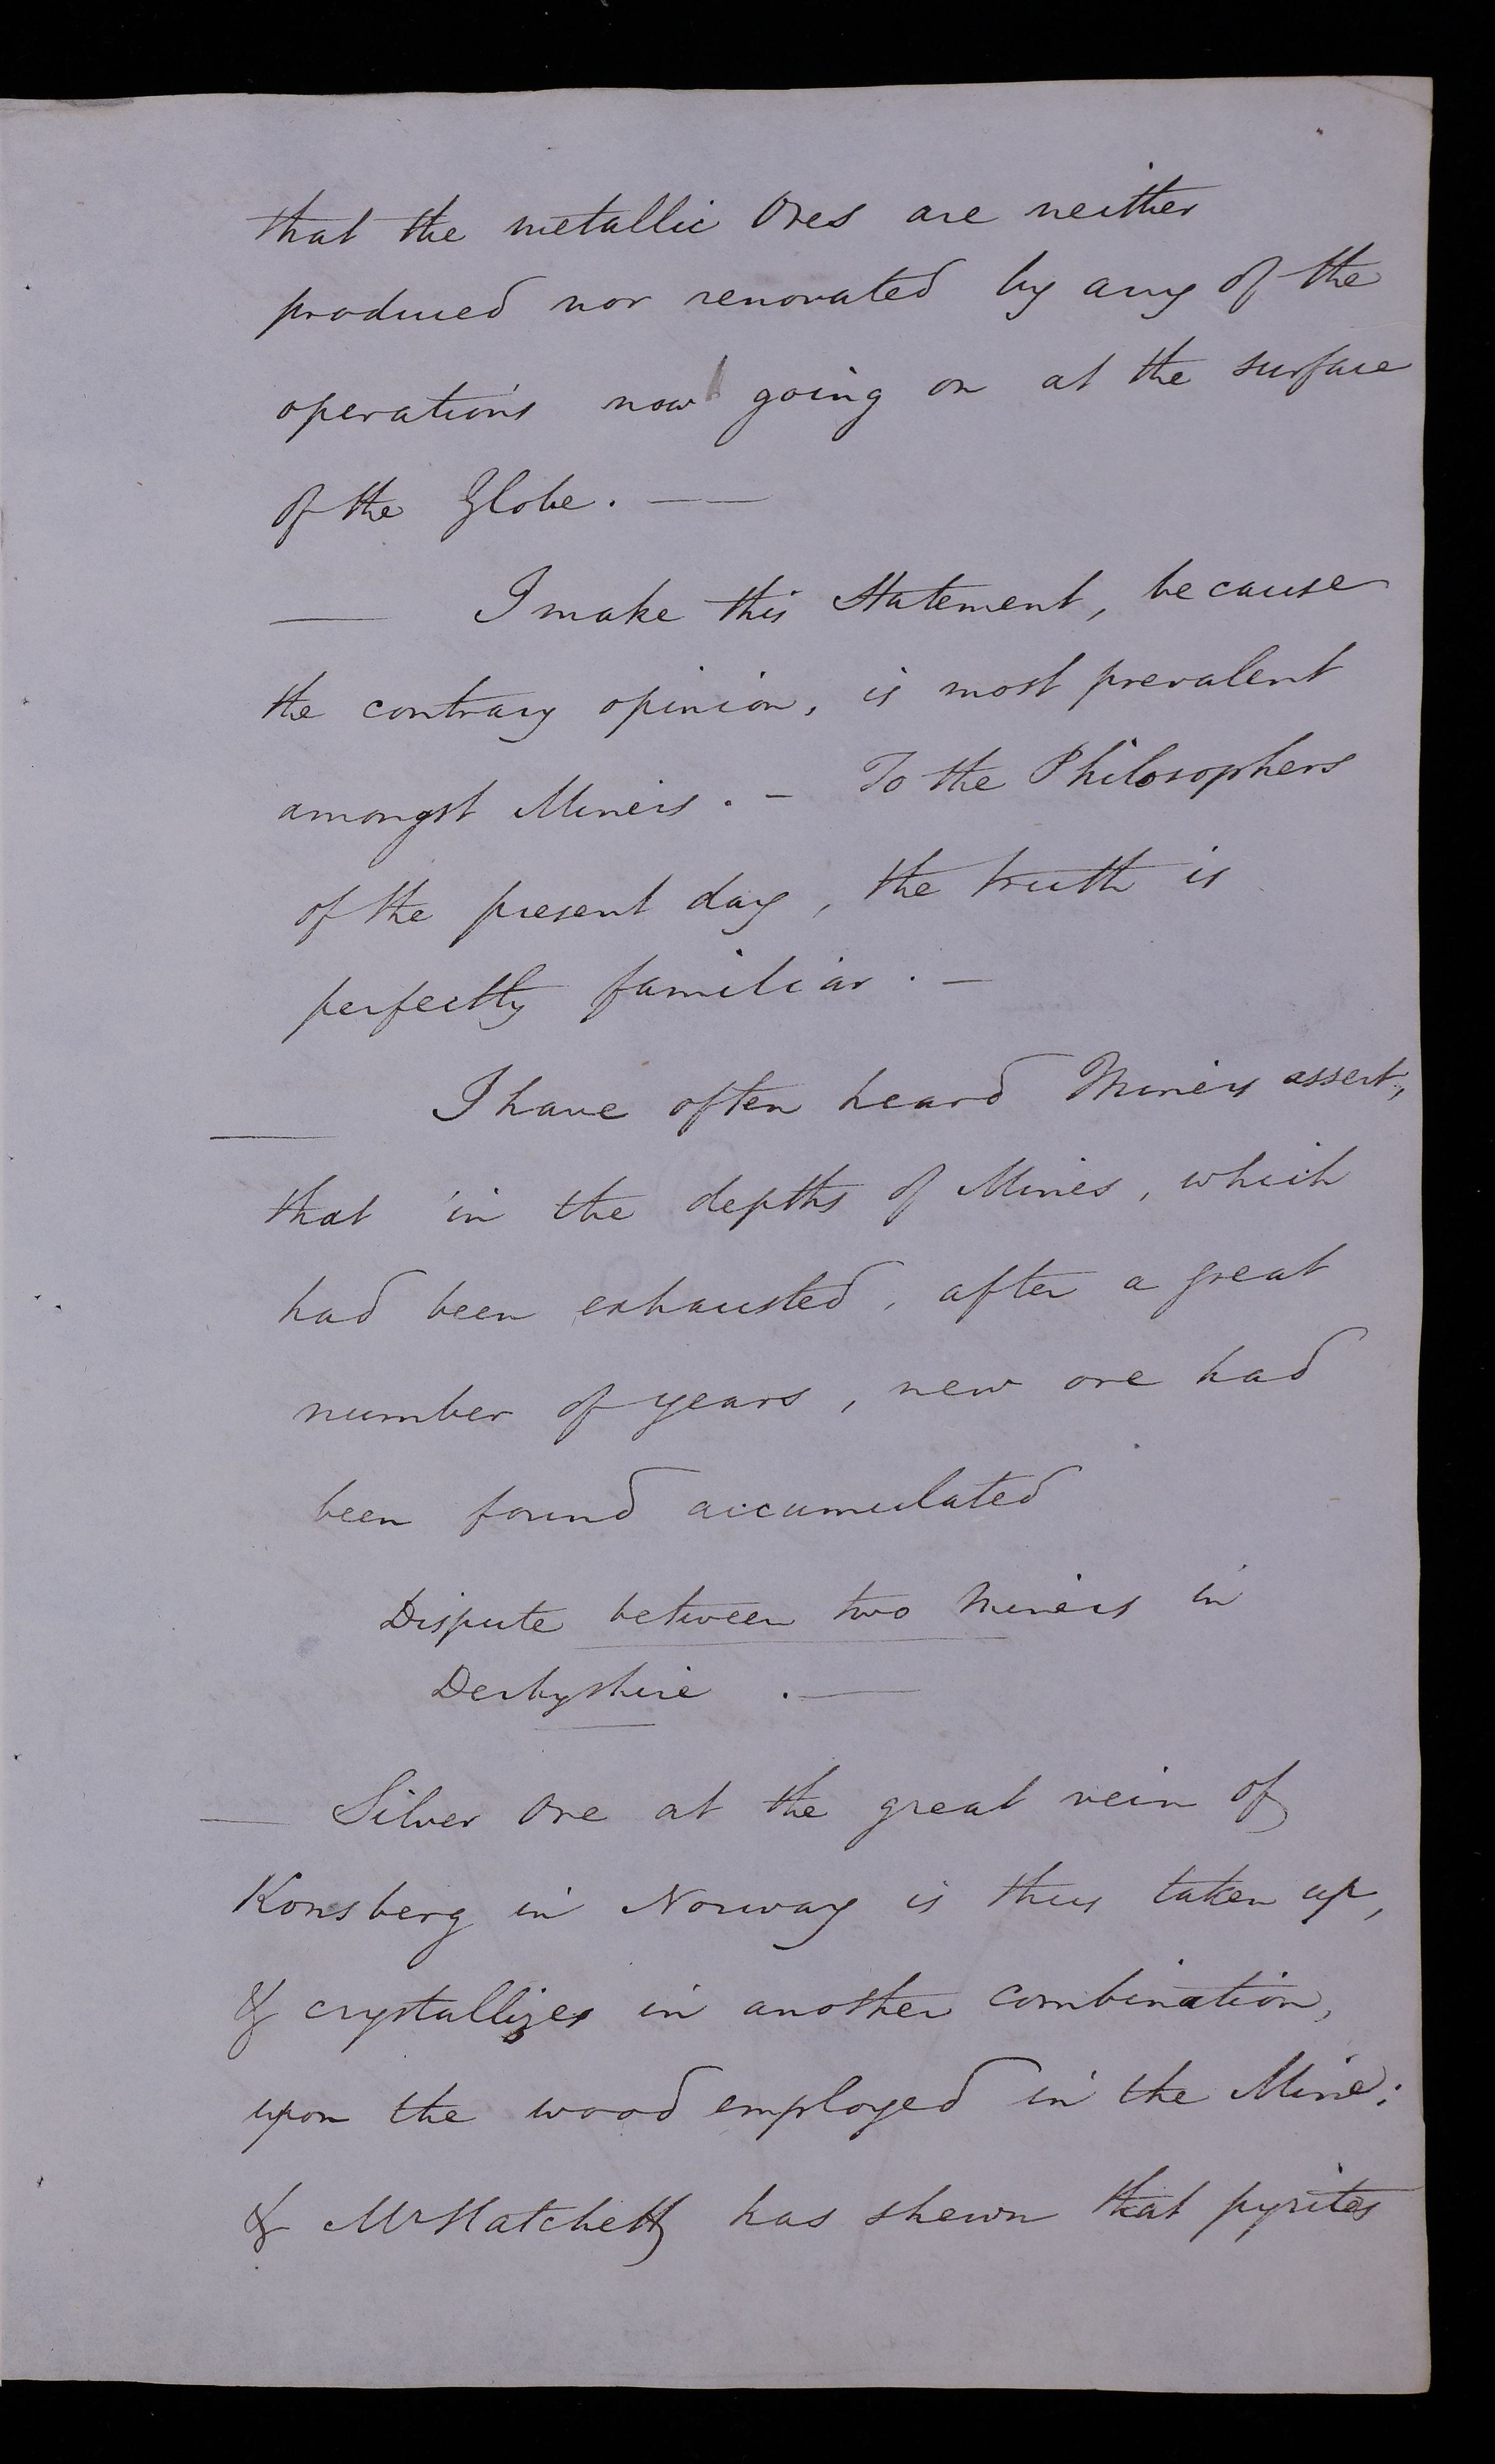 that the metallic Ores are neither
produced nor renovated by any of the
operations now going on at the surface
of the Globe. — —
— I make this Statement, because
the contrary opinion, is most prevalent
amongst Miners. – To the Philosophers
of the present day, the truth is
perfectly familiar. –
— I have often heard Miners assert,
that in the depths of Mines, which
had been exhausted, after a great
number of years, new ore had
been found accumulated
Dispute between two Miners in
Derbyshire . —
— Silver Ore at the great vein of
Konsberg in Norway is thus taken up,
& crystallizes in another combination,
upon the wood employed in the Mine;
& Mr Hatchett has shewn that pyrites